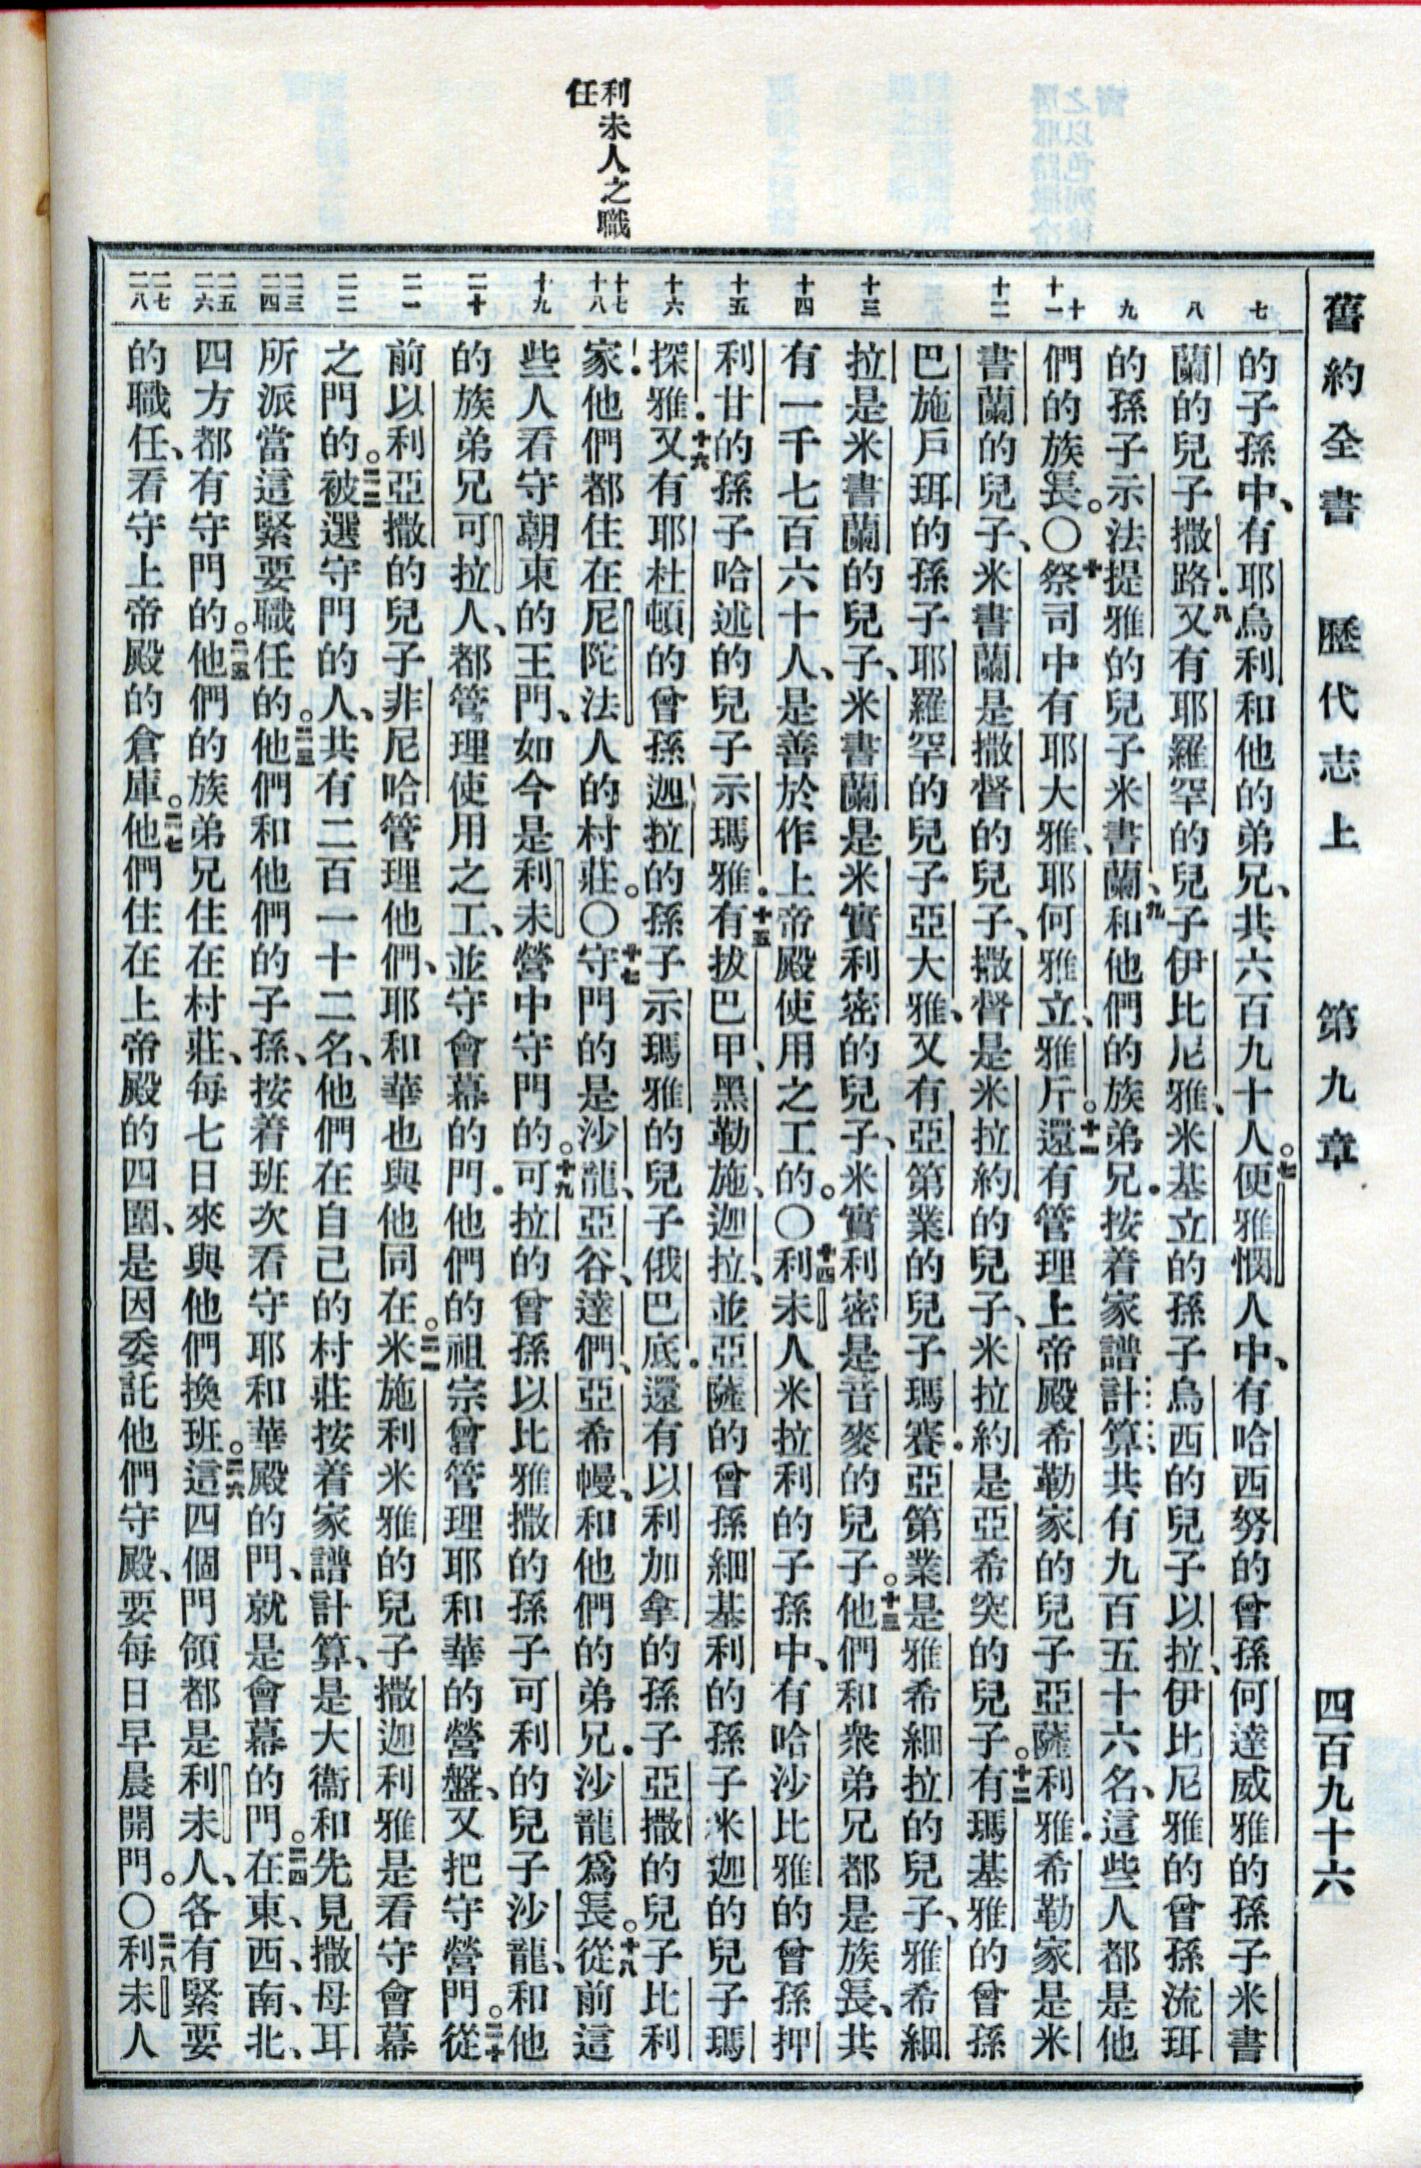 舊約全書　歷代志上　第九章　四百九十六
七
的子孫中、有耶烏利和他的弟兄、共六百九十人。七便雅憫人中、有哈西努的曾孫何達威雅的孫子米書
八
蘭的兒子撒路．八又有耶羅罕的兒子伊比尼雅、米基立的孫子烏西的兒子以拉、伊比尼雅的曾孫流珥
九
的孫子示法提雅的兒子米書蘭、九和他們的族弟兄．按着家譜計算、共有九百五十六名、這些人都是他
十
十一
們的族長。〇十祭司中有耶大雅、耶何雅立、雅斤。十一還有管理上帝殿希勒家的兒子亞薩利雅．希勒家是米
十二
書蘭的兒子、米書蘭是撒督的兒子、撒督是米拉約的兒子、米拉約是亞希突的兒子。十二有瑪基雅的曾孫
巴施戶珥的孫子耶羅罕的兒子亞大雅、又有亞第業的兒子瑪賽．亞第業是雅希細拉的兒子、雅希細
十三
拉是米書蘭的兒子、米書蘭是米實利密的兒子、米實利密是音麥的兒子。十三他們和衆弟兄都是族長、共
十四
有一千七百六十人、是善於作上帝殿使用之工的。〇十四利未人米拉利的子孫中、有哈沙比雅的曾孫押
十五
利甘的孫子哈述的兒子示瑪雅．十五有拔巴甲、黑勒施、迦拉、並亞薩的曾孫細基利的孫子米迦的兒子瑪
十六
探雅．十六又有耶杜頓的曾孫迦拉的孫子示瑪雅的兒子俄巴底．還有以利加拿的孫子亞撒的兒子比利
十七
十八
家．他們都住在尼陀法人的村莊。〇十七守門的是沙龍、亞谷、達們、亞希幔、和他們的弟兄．沙龍爲長。十八從前這
十九
些人看守朝東的王門、如今是利未營中守門的。十九可拉的曾孫以比雅撒的孫子可利的兒子沙龍、和他
二十
的族弟兄可拉人、都管理使用之工、並守會幕的門．他們的祖宗曾管理耶和華的營盤、又把守營門。二十從
二一
前以利亞撒的兒子非尼哈管理他們、耶和華也與他同在。二一米施利米雅的兒子撒迦利雅是看守會幕
二二
之門的。二二被選守門的人、共有二百一十二名、他們在自己的村莊按着家譜計算、是大衞和先見撒母耳
二三
二四
所派當這緊要職任的。二三他們和他們的子孫、按着班次看守耶和華殿的門、就是會幕的門。二四在東、西、南、北、
二五
二六
四方都有守門的。二五他們的族弟兄住在村莊、每七日來與他們換班。二六這四個門領都是利未人、各有緊要
二七
二八
的職任、看守上帝殿的倉庫。二七他們住在上帝殿的四圍、是因委託他們守殿、要每日早晨開門。〇二八利未人
利未人之職
任